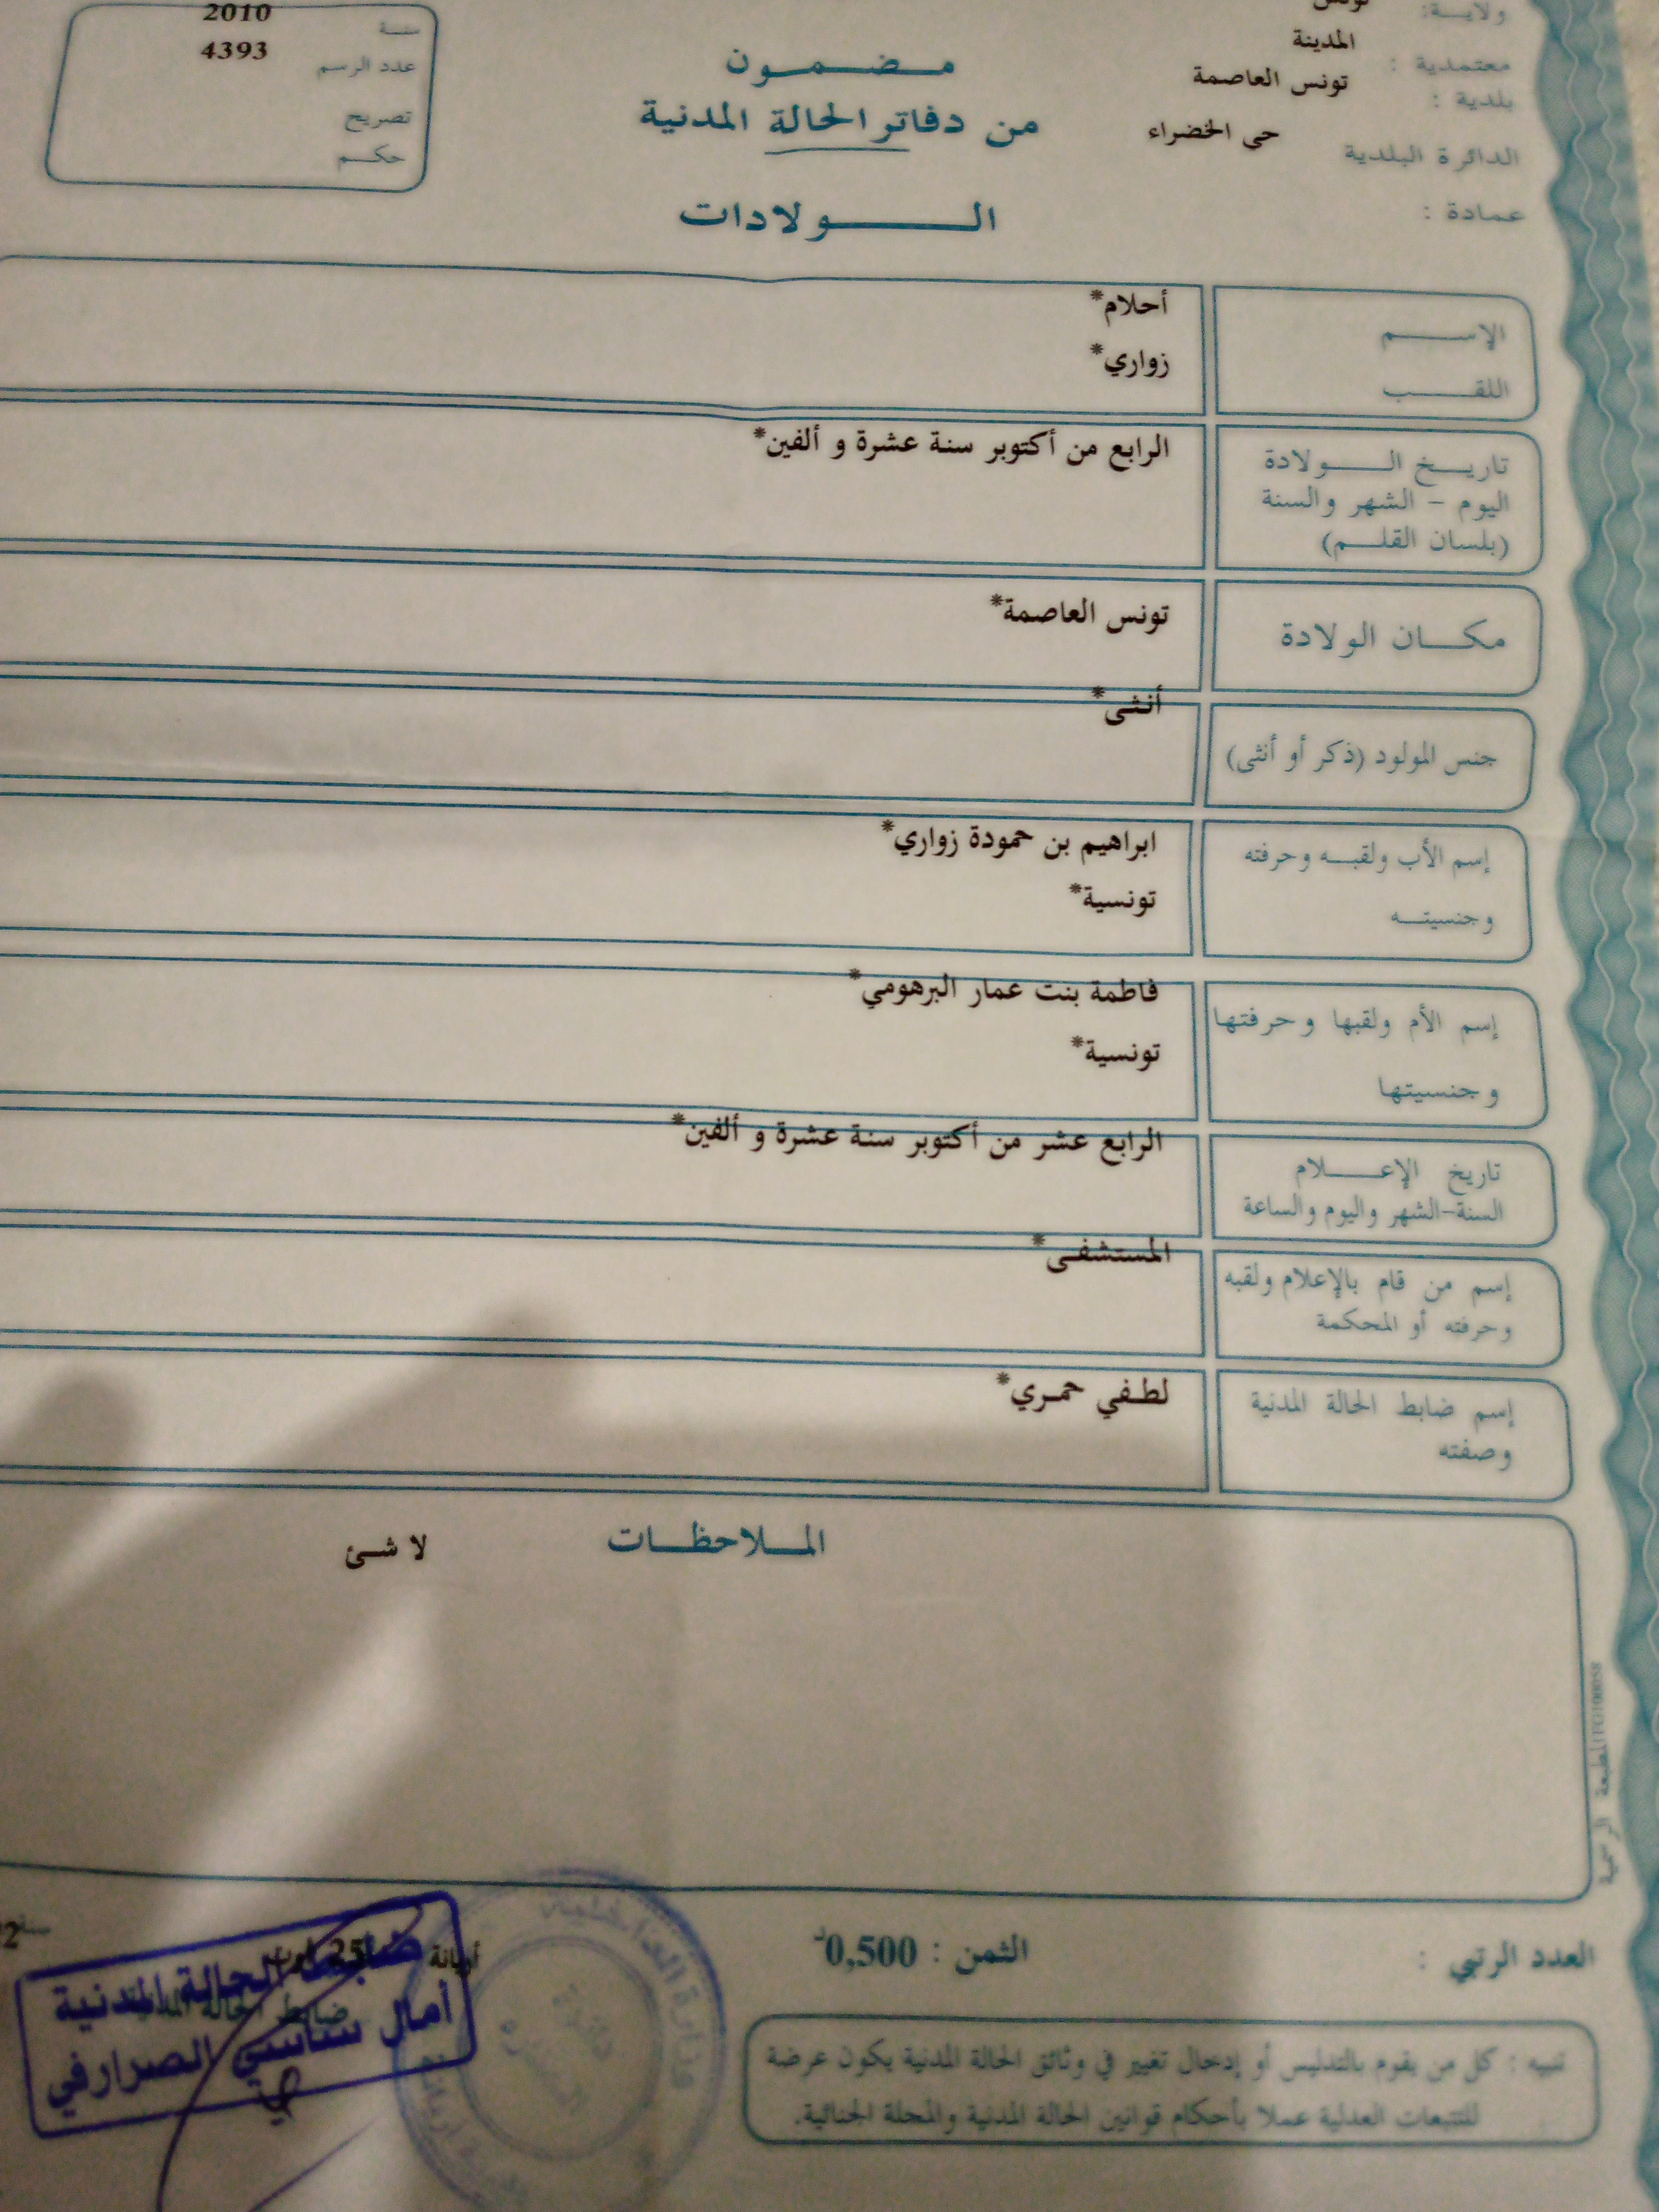 ولايـة: تونس
معتمدية : المدينة
بلدية : تونس العاصمة
الدائرة البلدية حى الخضراء
عمادة :
مضمون
من دفاتر الحالة المدنية
الولادات
سنة 2010
عدد الرسم 4393
تصريح
حكم
الإسم أحلام*
اللقب زواري*
تاريخ الولادة الرابع من أكتوبر سنة عشرة و ألفين*
اليوم - الشهر والسنة
(بلسان القلم)
مكان الولادة تونس العاصمة*
جنس المولود (ذكر أو أنثى) أنثى*
إسم الأب ولقبه وحرفته ابراهيم بن حمودة زواري*
وجنسيته تونسية*
إسم الأم ولقبها وحرفتها فاطمة بنت عمار البرهومي*
وجنسيتها تونسية*
تاريخ الإعلام الرابع عشر من أكتوبر سنة عشرة و ألفين*
السنة-الشهر واليوم والساعة
إسم من قام بالإعلام ولقبه المستشفى*
وحرفته أو المحكمة
إسم ضابط الحالة المدنية لطفي حمري*
وصفته
الملاحظات لا شئ
المطبعة الرسمية
العدد الرتبي : الثمن : 0,500د
أريانة 25
ضابط الحالة المدنية
ضابط الحالة المدنية
أمال ساسي الصرارفي
وزارة الداخلية
تنبيه : كل من يقوم بالتدليس أو إدخال تغيير في وثائق الحالة المدنية يكون عرضة
للتتبعات العدلية عملا بأحكام قوانين الحالة المدنية والمجلة الجنائية.